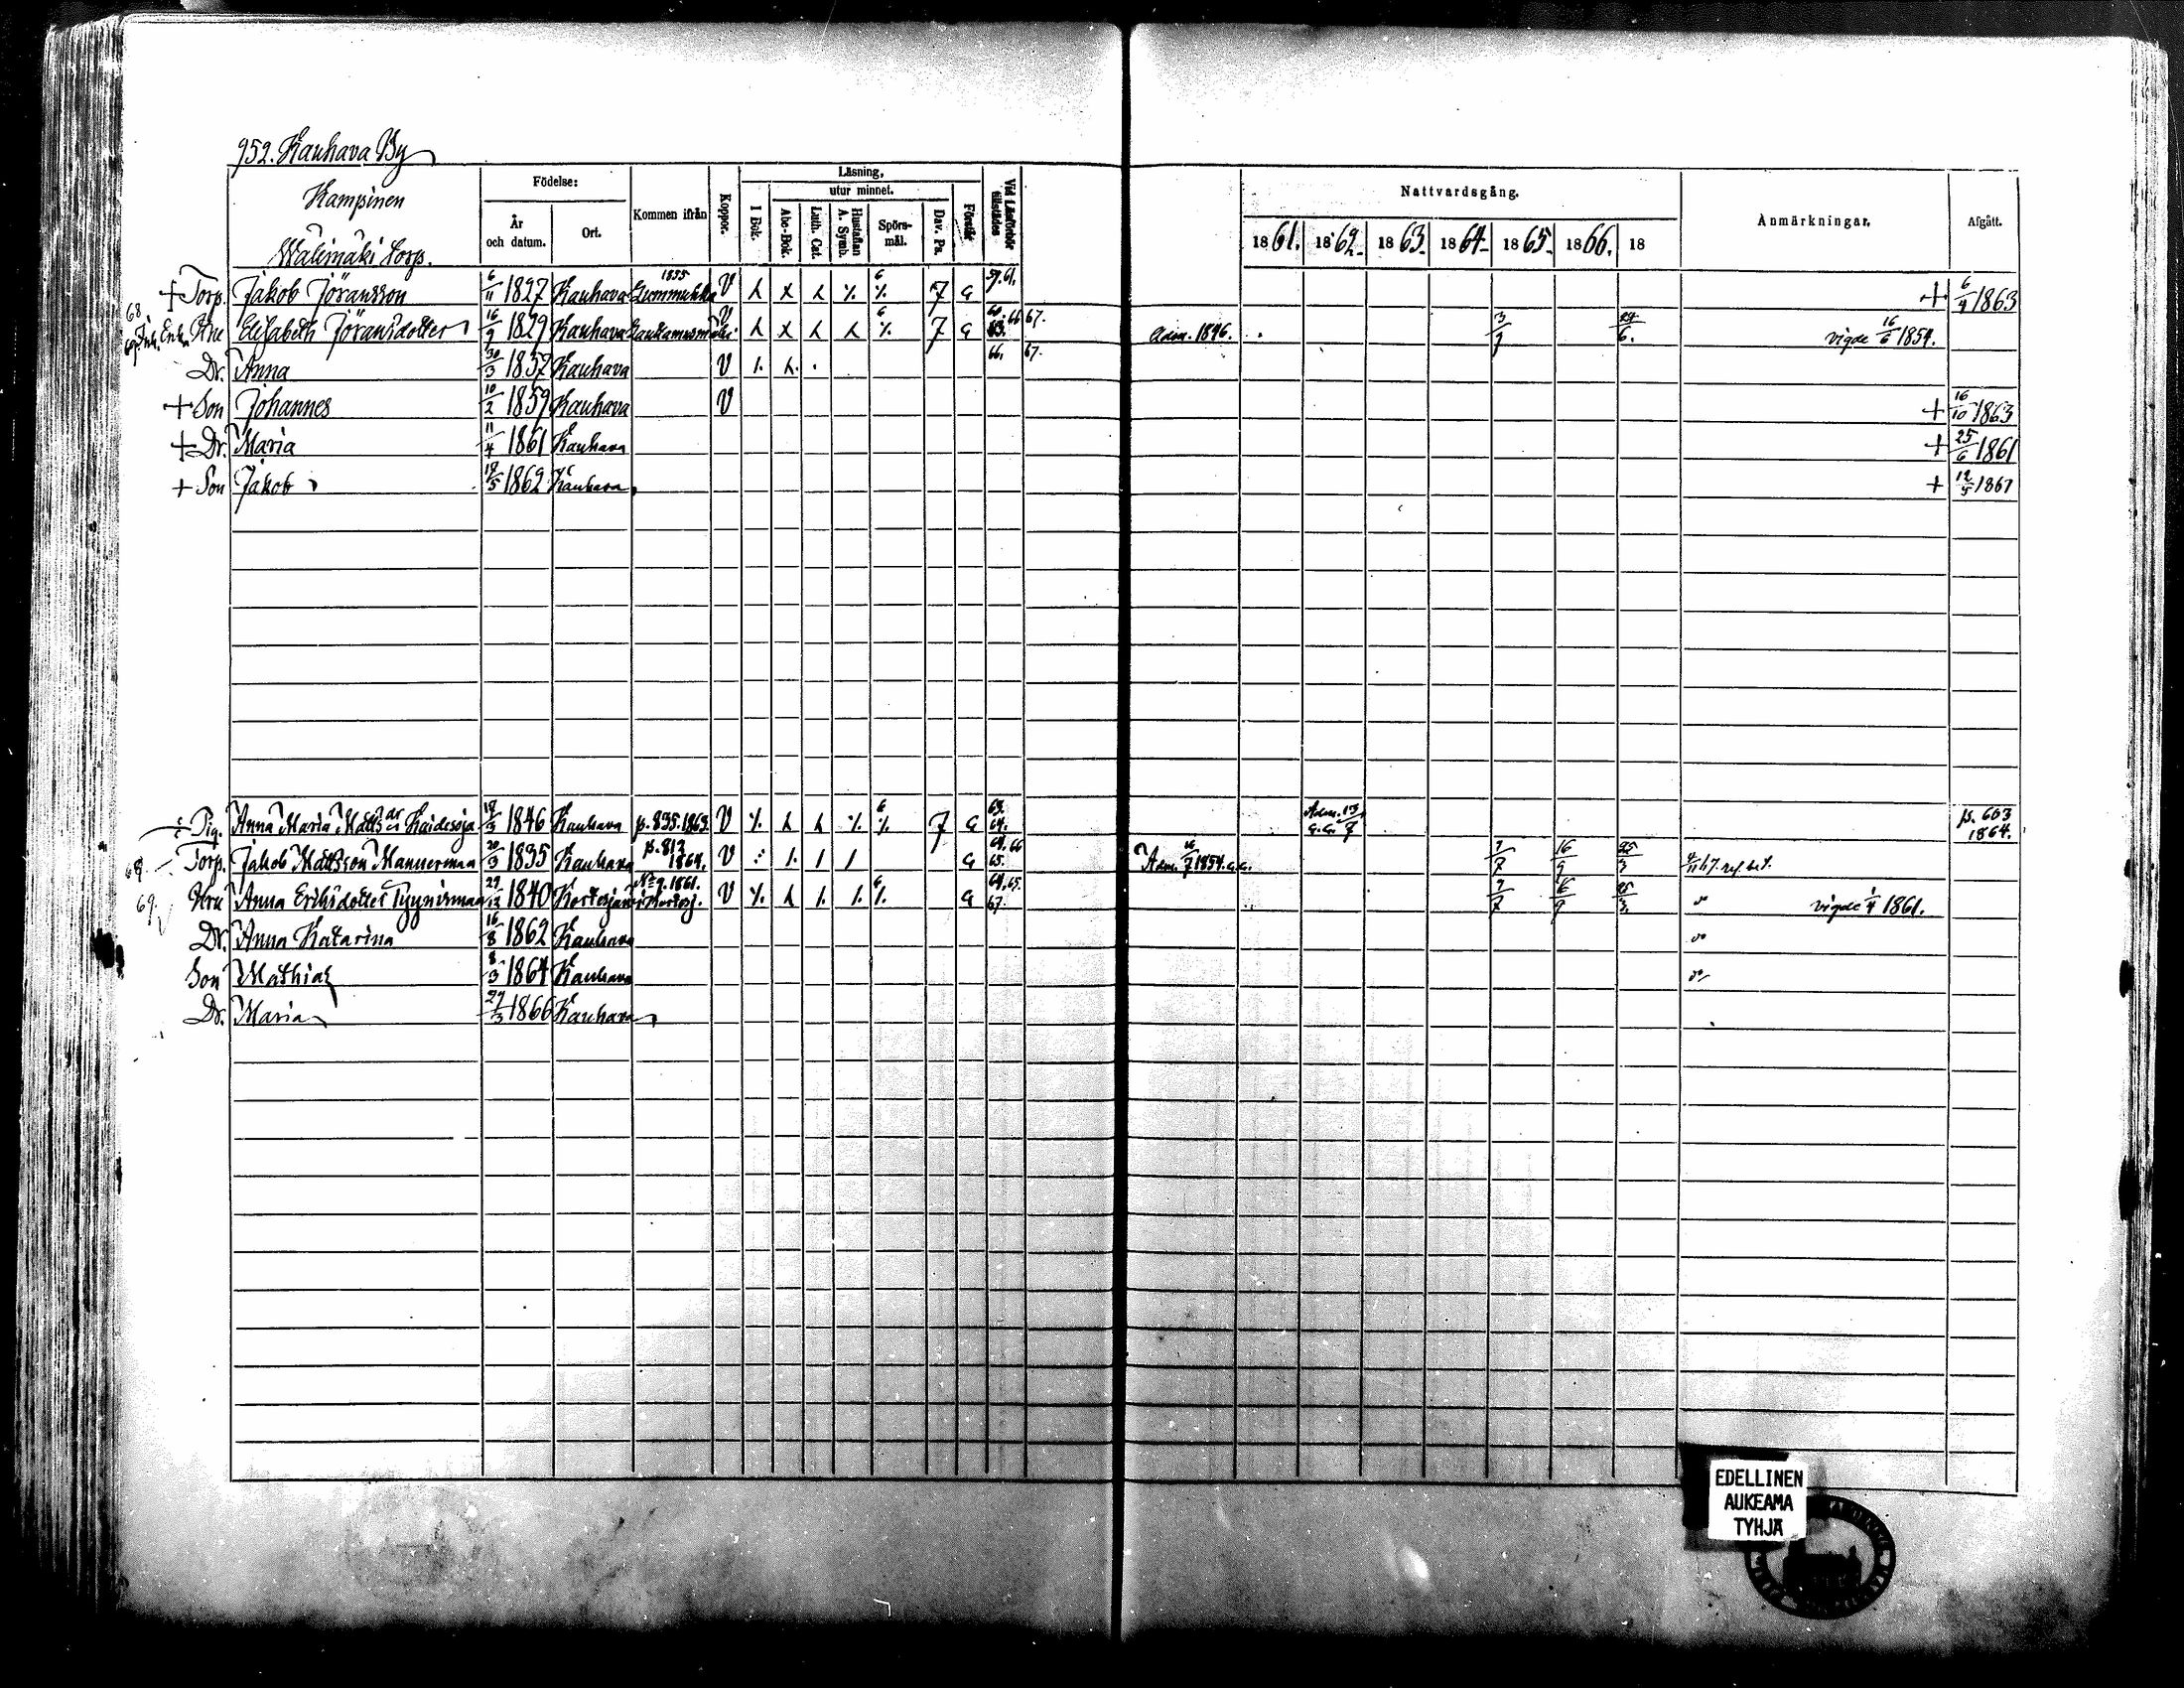 952. Kauhava By
Kampinen
Wälimäki Torp.
Födelse: År och datum. Ort. Kommen ifrån Koppor. Läsning, I Bok. utur minnet. Abc-Bok. Luth. Cat. Hustaflan A. Symb. Spörs-mål. Dav. Ps. Förstår Vid Läsförhör tillstädes
Nattvardsgång. 1861. 1862. 1863. 1864. 1865. 1866. 18 Anmärkningar. Afgått.
+ Torp. Jakob Jöransson 6/11 1827 Kauhava 1855 V 6 7 G 59. 61. + 6/4 1863
68 69 Enk. Hru Elisabeth Jöransdotter 16/9 1829 Kauhava V 7 G 60. 66 67. 63. Adm. 1846. 3/9 24/6. vigde 16/6 1854.
Dr. Anna 30/3 1857 Kauhava V 66. 67.
+ Son Johannes 10/2 1859 Kauhava V + 16/10 1863
+ Dr. Maria 11/4 1861 Kauhava + 25/6 1861
+ Son Jakob 18/5 1862 Kauhava + 12/5 1867
Pig. Anna Maria Mattsdr Kaidesoja 18/3 1846 Kauhava p. 835. 1863. V 6 7 G 63. 64. Adm. 13/7 G.G. p. 663 1864.
68 Torp. Jakob Mattsson Mannermaa 20/3 1835 Kauhava p. 812 1864. V G 64. 66 65. Adm. 16/7 1854. G.G. 9/7 16/9 25/3
69. Hru Anna Eriksdotter Tyynismaa 29/12 1840 Kortesjärvi N:o 9. 1861. V 6 G 64. 65. 67. 9/7 16/9 25/3. vigde 1/4 1861.
Dr. Anna Katarina 16/8 1862 Kauhava
Son Mathias 8/3 1864 Kauhava
Dr. Maria 24/3 1866 Kauhava
EDELLINEN
AUKEAMA
TYHJÄ